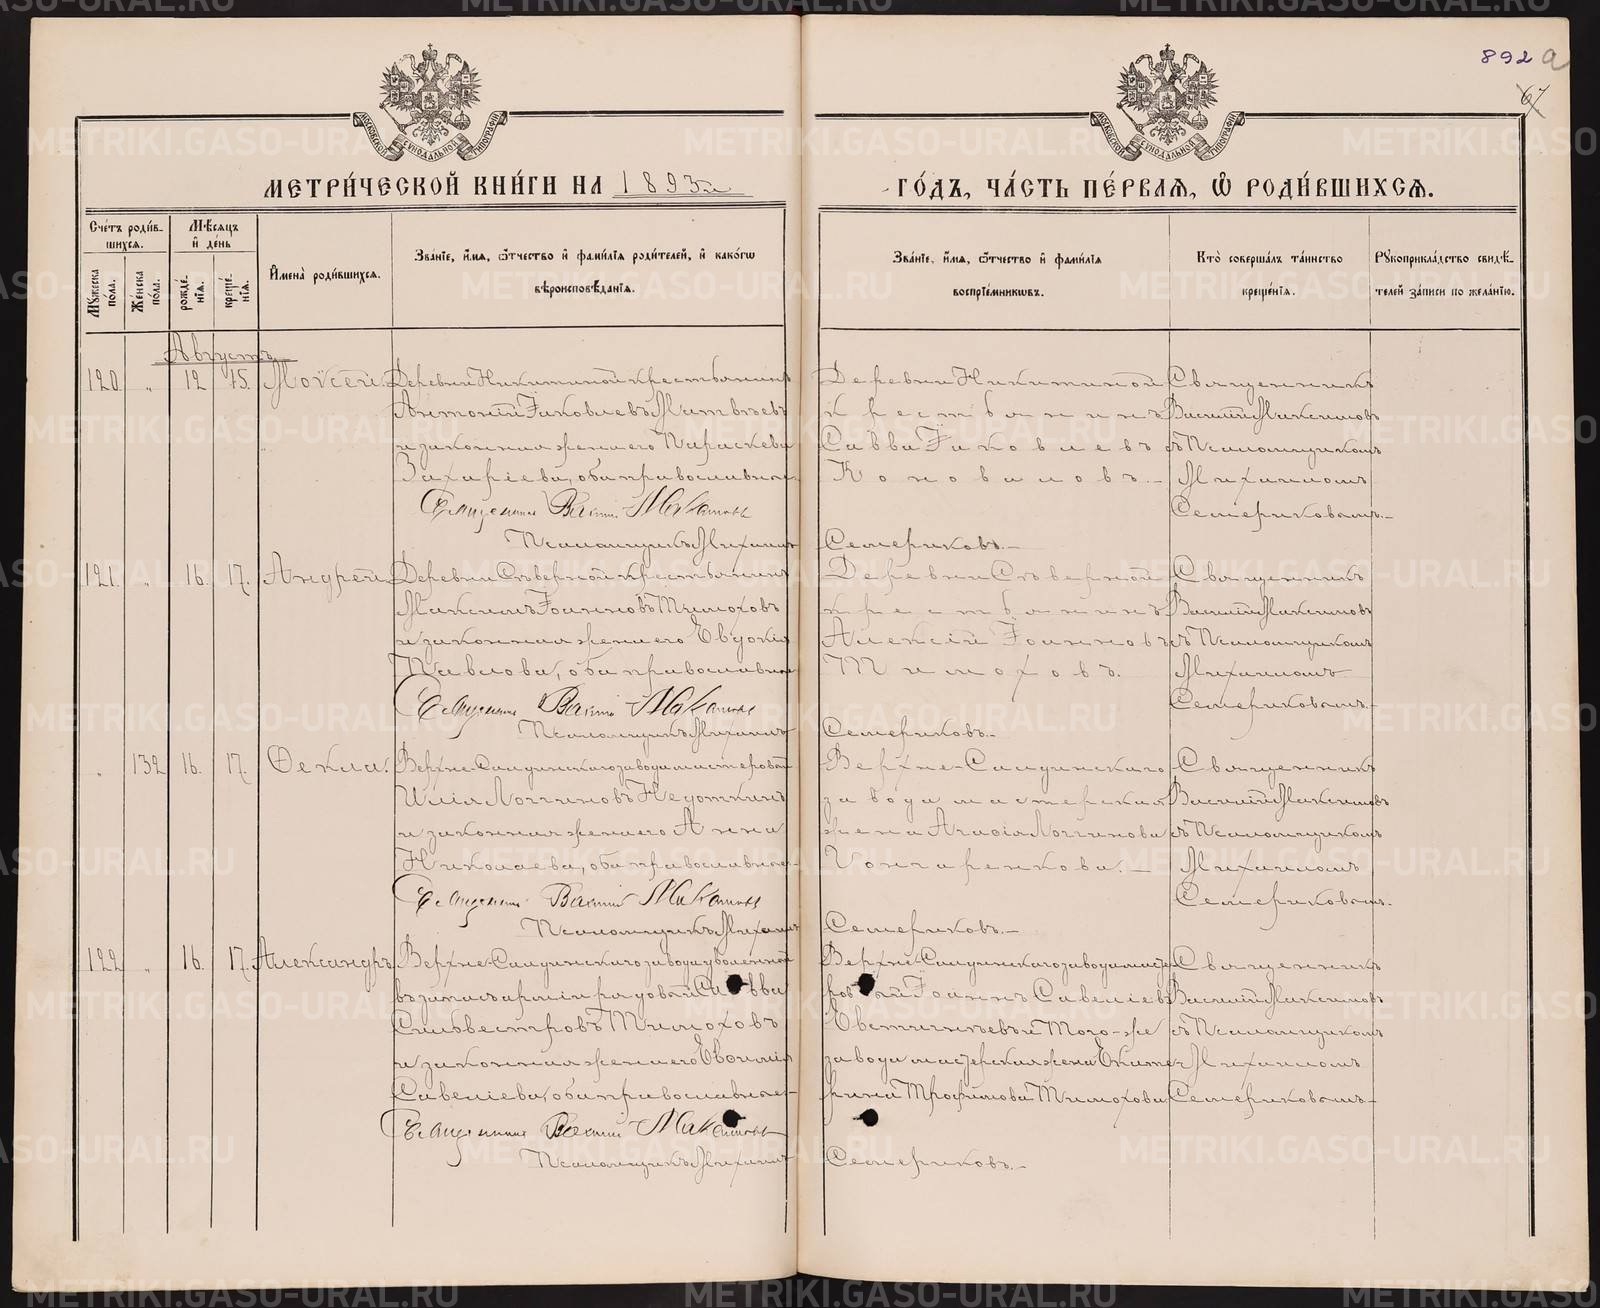 892 а
67
МОСКОВСКОЙ СУНОДАЛЬНОЙ ТИПОГРАФІИ
МОСКОВСКОЙ СУНОДАЛЬНОЙ ТИПОГРАФІИ
МЕТРИ́ЧЕСКОЙ КНИ́ГИ НА 1893й
ГО́ДЪ, ЧА́СТЬ ПЕ́РВАѦ, Ѡ҆ РОДИ́ВШИХСѦ.
Сче́тъ роди́в-
шихсѧ.
Мꙋ́жеска по́ла.
Же́нска по́ла.
Мѣ́сѧцъ и҆ де́нь
рожде́-нїѧ.
креще́-нїѧ.
И҆мена̀ роди́вшихсѧ.
Зва́нїе, и҆́мѧ, ѻ҆́тчество и҆ фами́лїѧ роди́телей, и҆ како́гѡ
вѣроисповѣ́данїѧ.
Зва́нїе, и҆́мѧ, ѻ҆́тчество и҆ фами́лїѧ
воспрїе́мникѡвъ.
Кто̀ соверша́лъ та́инство
креще́нїѧ.
Рꙋкоприкла́дство свидѣ́-
телей за́писи по жела́нїю.
Августъ
120. " 12 15. Моѵсей.
Деревни Никитиной крестьянинъ
Антоній Іаковлевъ Матвѣевъ
и законная жена его Параскева
Захаріева, оба православные.
Священникъ Василій Максимовъ
Псаломщикъ Михаилъ Семериковъ.
Деревни Никитиной
крестьянинъ
Савва Іаковлевъ
Коноваловъ.
Священникъ
Василій Максимовъ
съ Псаломщикомъ
Михаиломъ
Семериковымъ.
121. " 16. 17. Андрей.
Деревни Сѣверной крестьянинъ
Максимъ Іоанновъ Тимоховъ
и законная жена его Евдокія
Павлова, оба православные
Священникъ Василій Максимовъ
Псаломщикъ Михаилъ Семериковъ.
Деревни Сѣверной
крестьянинъ
Алексій Іоанновъ
Тимоховъ.
Священникъ
Василій Максимовъ
съ Псаломщикомъ
Михаиломъ
Семериковымъ.
" 132 16. 17. Ѳекла.
Верхне-Салдинскаго завода мастеровой
Илія Логгиновъ Недоткинъ
и законная жена его Анна
Николаева, оба православные.
Священникъ Василій Максимовъ
Псаломщикъ Михаилъ Семериковъ.
Верхне-Салдинскаго
завода мастерская
жена Агафія Логгинова
Гончаренкова.
Священникъ
Василій Максимовъ
съ Псаломщикомъ
Михаиломъ
Семериковымъ.
122 " 16. 17. Александръ.
Верхне-Салдинскаго завода уволенной
въ запасъ арміи рядовый Савва
Сильвестровъ Тимоховъ
и законная жена его Евфимія
Савеліева, оба православные.
Священникъ Василій Максимовъ
Псаломщикъ Михаилъ Семериковъ.
Верхне-Салдинскаго завода масте-
ровый Іоаннъ Савеліевъ
Евстигнѣевъ и Того-же
завода мастерская жена Екате-
рина Трофимова Тимохова
Священникъ
Василій Максимовъ
съ Псаломщикомъ
Михаиломъ
Семериковымъ.
METRIKI.GASO-URAL.RU